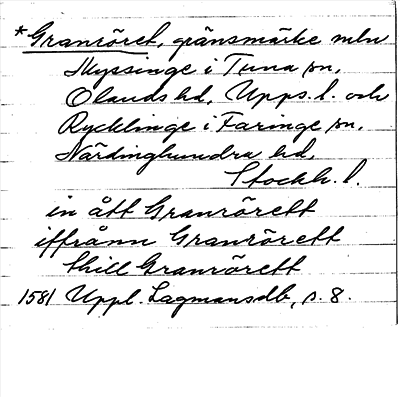 *Granröret, gränsmärke mln
Myssinge i Tuna sn,
Olands hd, Upps. l. och
Rycklinge i Faringe sn,
Närdinghundra hd,
Stockh. l.
in ått Granrörett
iffrånn Granrörett
thill Granrörett
1581 Uppl. Lagmansdb, s. 8.